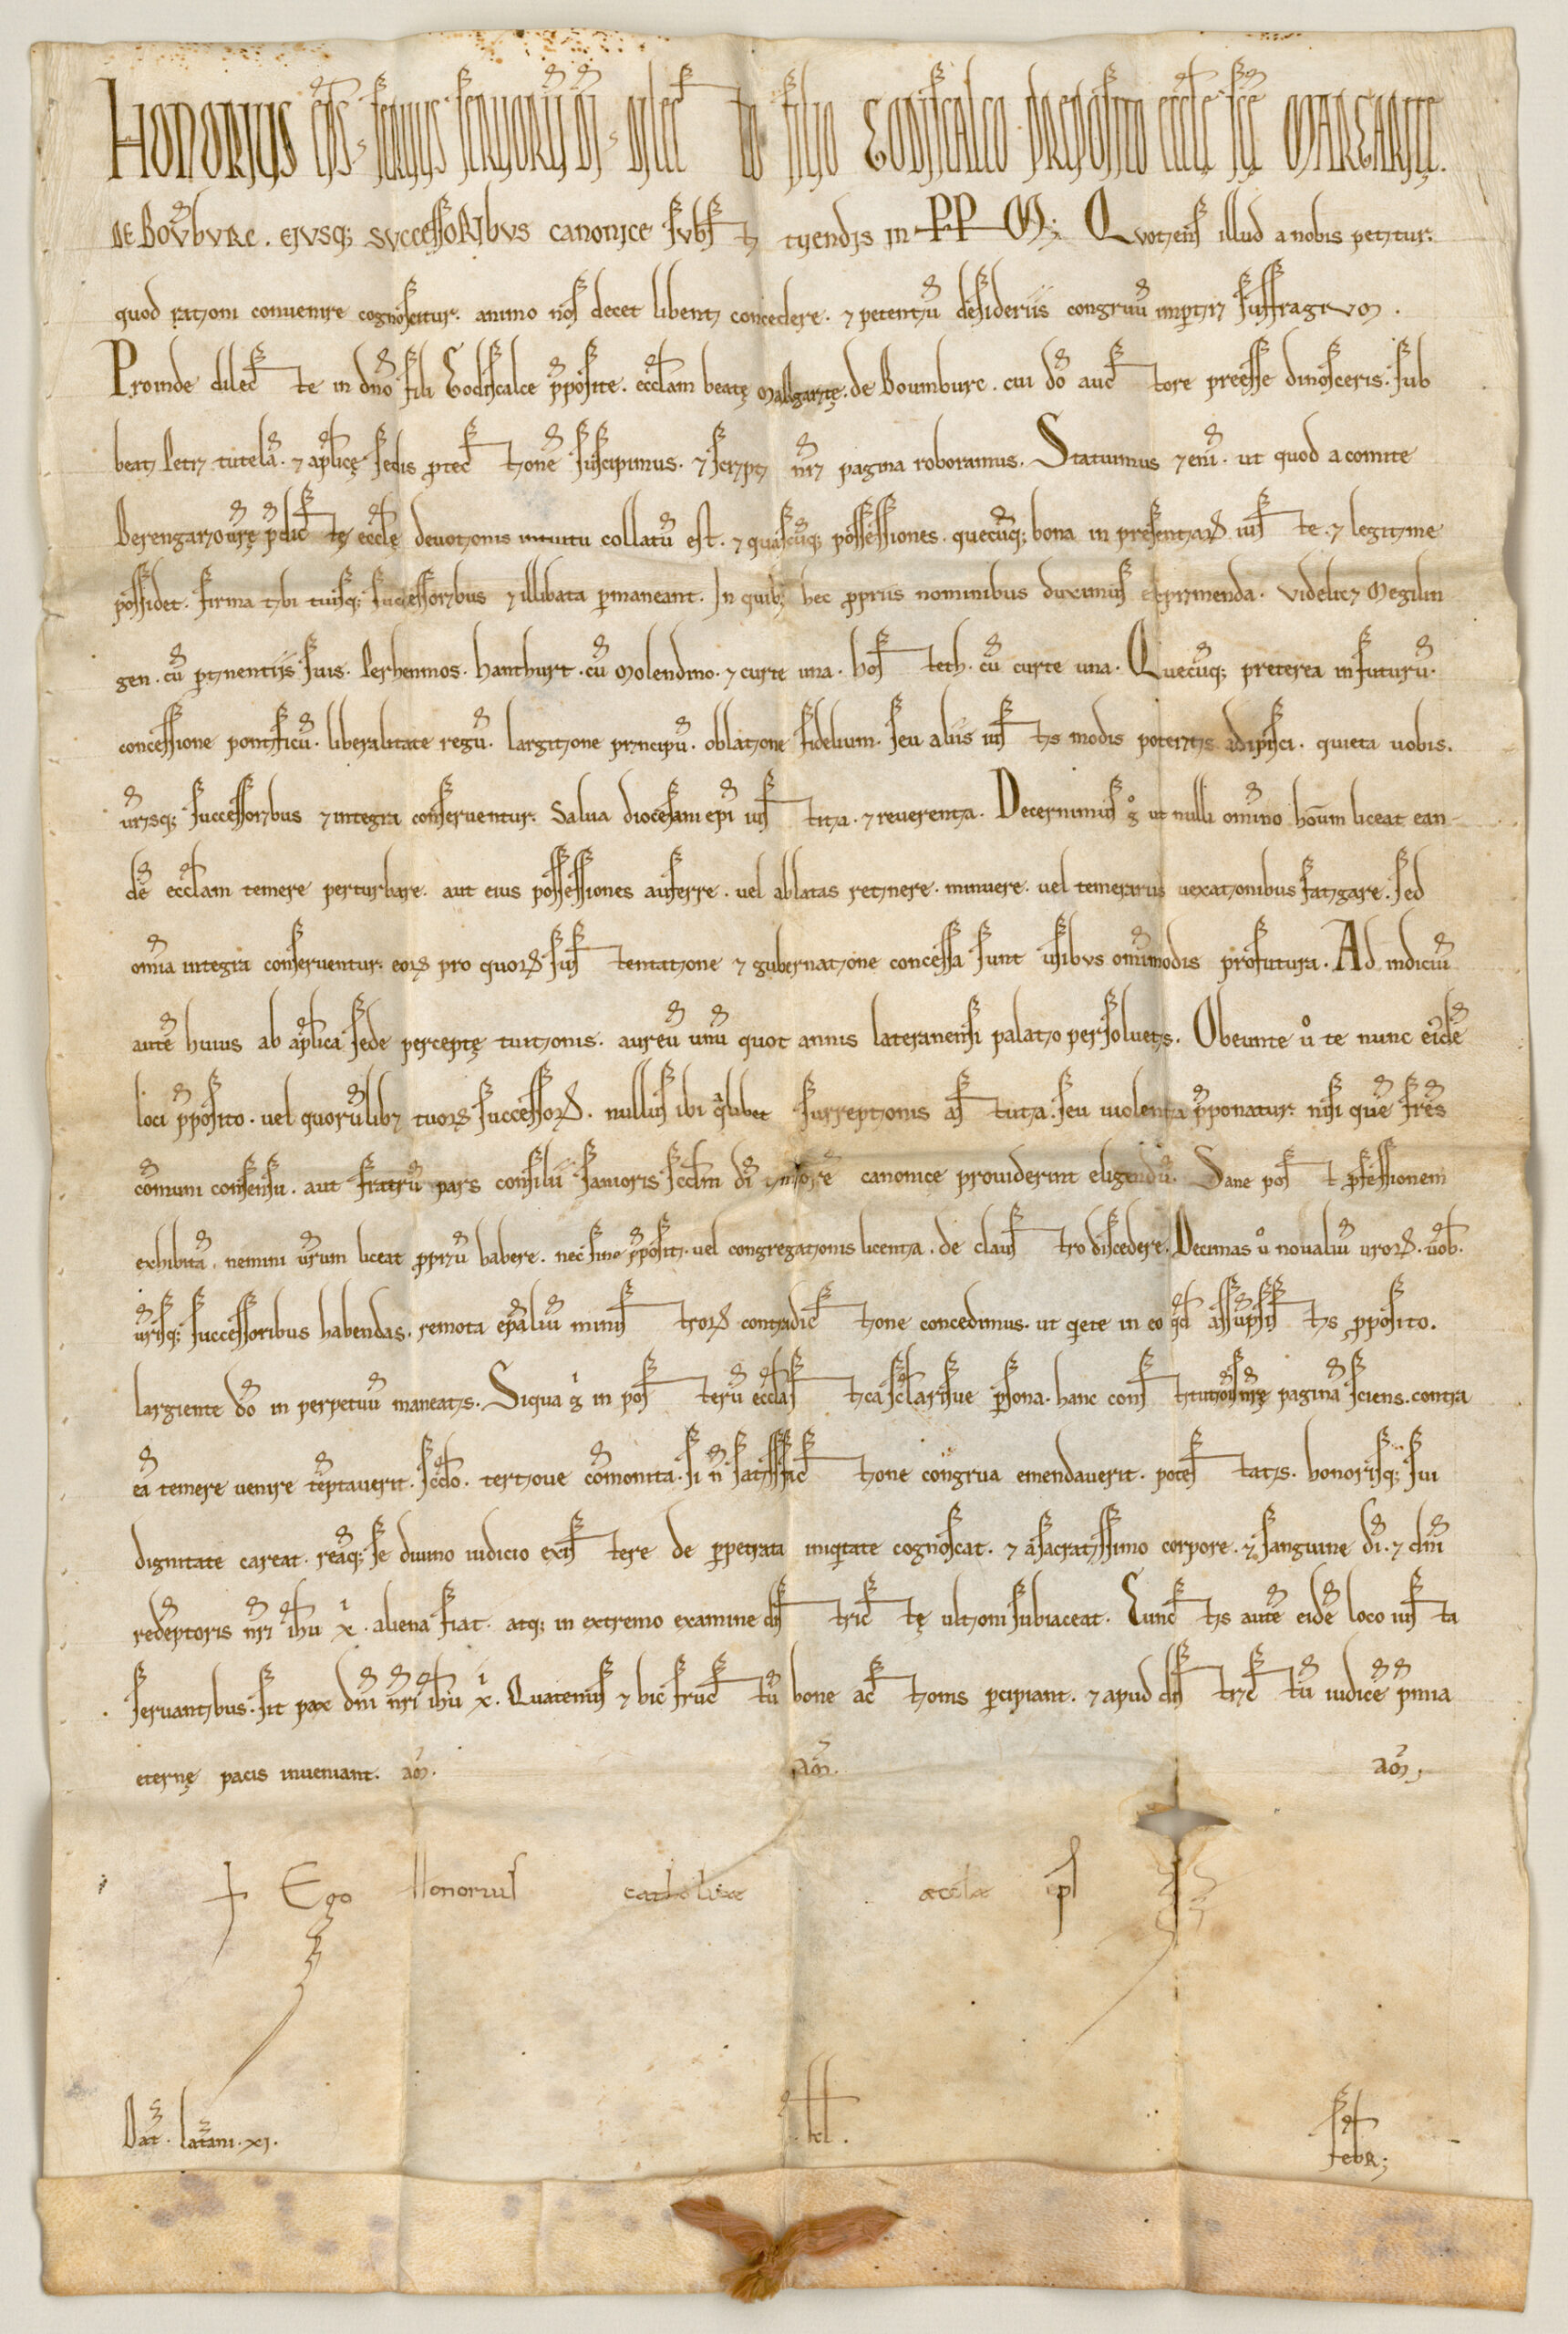 HONORIUS ep̄s servus servorū dī dilecto filio GODISCALCO preposito eccłe scē MARGARITĘ.
DE BOVBURC. EJUSQ; SUCCESSORIBUS CANONICE substituendis in PPM; Quotiens illud a nobis petitur.
quod rationi convenire cognoscitur. animo nos decet libenti concedere. ⁊ petentiū desideriis congruū imꝑtiri suffragium.
Proinde dilecte in dn̄o fili Godiscalce p̄posite. eccłam beatę Margaritę. de Boumburc. cui dō auctore preesse dinosceris. sub
beati Petri tutelā. ⁊ ap̄licę sedis ꝓtectionē suscipimus. ⁊ scripti nr̄i pagina roboramus. Statuimus ⁊enī. ut quod a comite
Berengario ur̄ę p̄dictę eccłę devotionis intuitu collatū est. ⁊ quascūq; possessiones. quecūq; bona in presentiaꝝ iuste. ⁊ legitime
possidet. firma tibi tuisq; successoribus ⁊ illibata ꝑmaneant. In quib; hec ꝓpriis nominibus duximus exprimenda. videlic⁊ Megilin
gen. cū ꝑtinentiis suis. Perhennos. hanthurt. cū molendino. ⁊ curte una. hosteth. cū curte una. Quecūq; preterea in futurū.
concessione pontificū. liberalitate regū. largitione principū. oblatione fidelium. seu aliis iustis modis poteritis adipisci. quieta uobis.
ur̄isq; successoribus ⁊ integra conserventur. Salva diocesani ep̄i iustitia. ⁊ reverentia. Decernimus g̊ ut nulli om̄ino hom̄ liceat ean-
dē eccłam temere perturbare. aut eius possessiones auferre. vel ablatas retinere. minuere. vel temerariis vexationibus fatigare. sed
om̄ia integra conserventur. eoꝝ pro quoꝝ sustentatione ⁊ gubernatione concessa sunt usibus om̄imodis profutura. Ad indiciū
autē huius ab ap̄lica sede perceptę tuitionis. aureū unū quot annis lateranensi palatio persoluetis. Obeunte ů te nunc eidē
loci p̄posito. vel quorūlib⁊ tuoꝝ successoꝝ. nullus ibi q̄libet surreptionis astutia. seu violentia p̄ponatur. nisi quē fr̄es
cōmuni consensu. aut fratrū pars consilii sanioris scd̄m dī timorē canonice providerint eligendū. Sane post ꝓfessionem
exhibitā. nemini ur̄um liceat ꝓpriū habere. nec sine p̄positi. vel congregationis licentia. de claustro discedere. Decimas ů novaliū uroꝝ. uob.
ur̄isq; successoribus habendas. remota ep̄aliū ministroꝝ contradictione concedimus. ut q̄ete in eo qd̄ assūpsistis ꝓposito.
largiente dō in perpetuū maneatis. Siqua g̊ in posterū eccłastica sc̄larisve ꝑsona. hanc constitutiōis nr̄ę paginā sciens. contra
eā temere venire tēptaverit. sc̄do. tertiove cōmonita. si n̄ satisfactione congrua emendaverit. potestatis. honorisq; sui
dignitate careat. reāq; se divino iudicio existere de ꝑpetrata iniq̄tate cognoscat. ⁊ a sacratissimo corpore. ⁊ sanguine dī. ⁊ dn̄i
redēptoris nr̄i ihū x̄. aliena fiat. atq; in extremo examine districtę ultioni subiaceat. Cunctis autē eidē loco iusta
servantibus. sit pax dn̄i nr̄i ihū x̄. Quatenus ⁊ hic fructū bone actionis ꝑcipiant. ⁊ apud districtū iudicē p̄mia
eternę pacis inveniant. am̄. am̄. am̄;
† Ego Honorius catholicæ æcclæ eps
Dat̄. lat̄ani. xi. kl. febr;